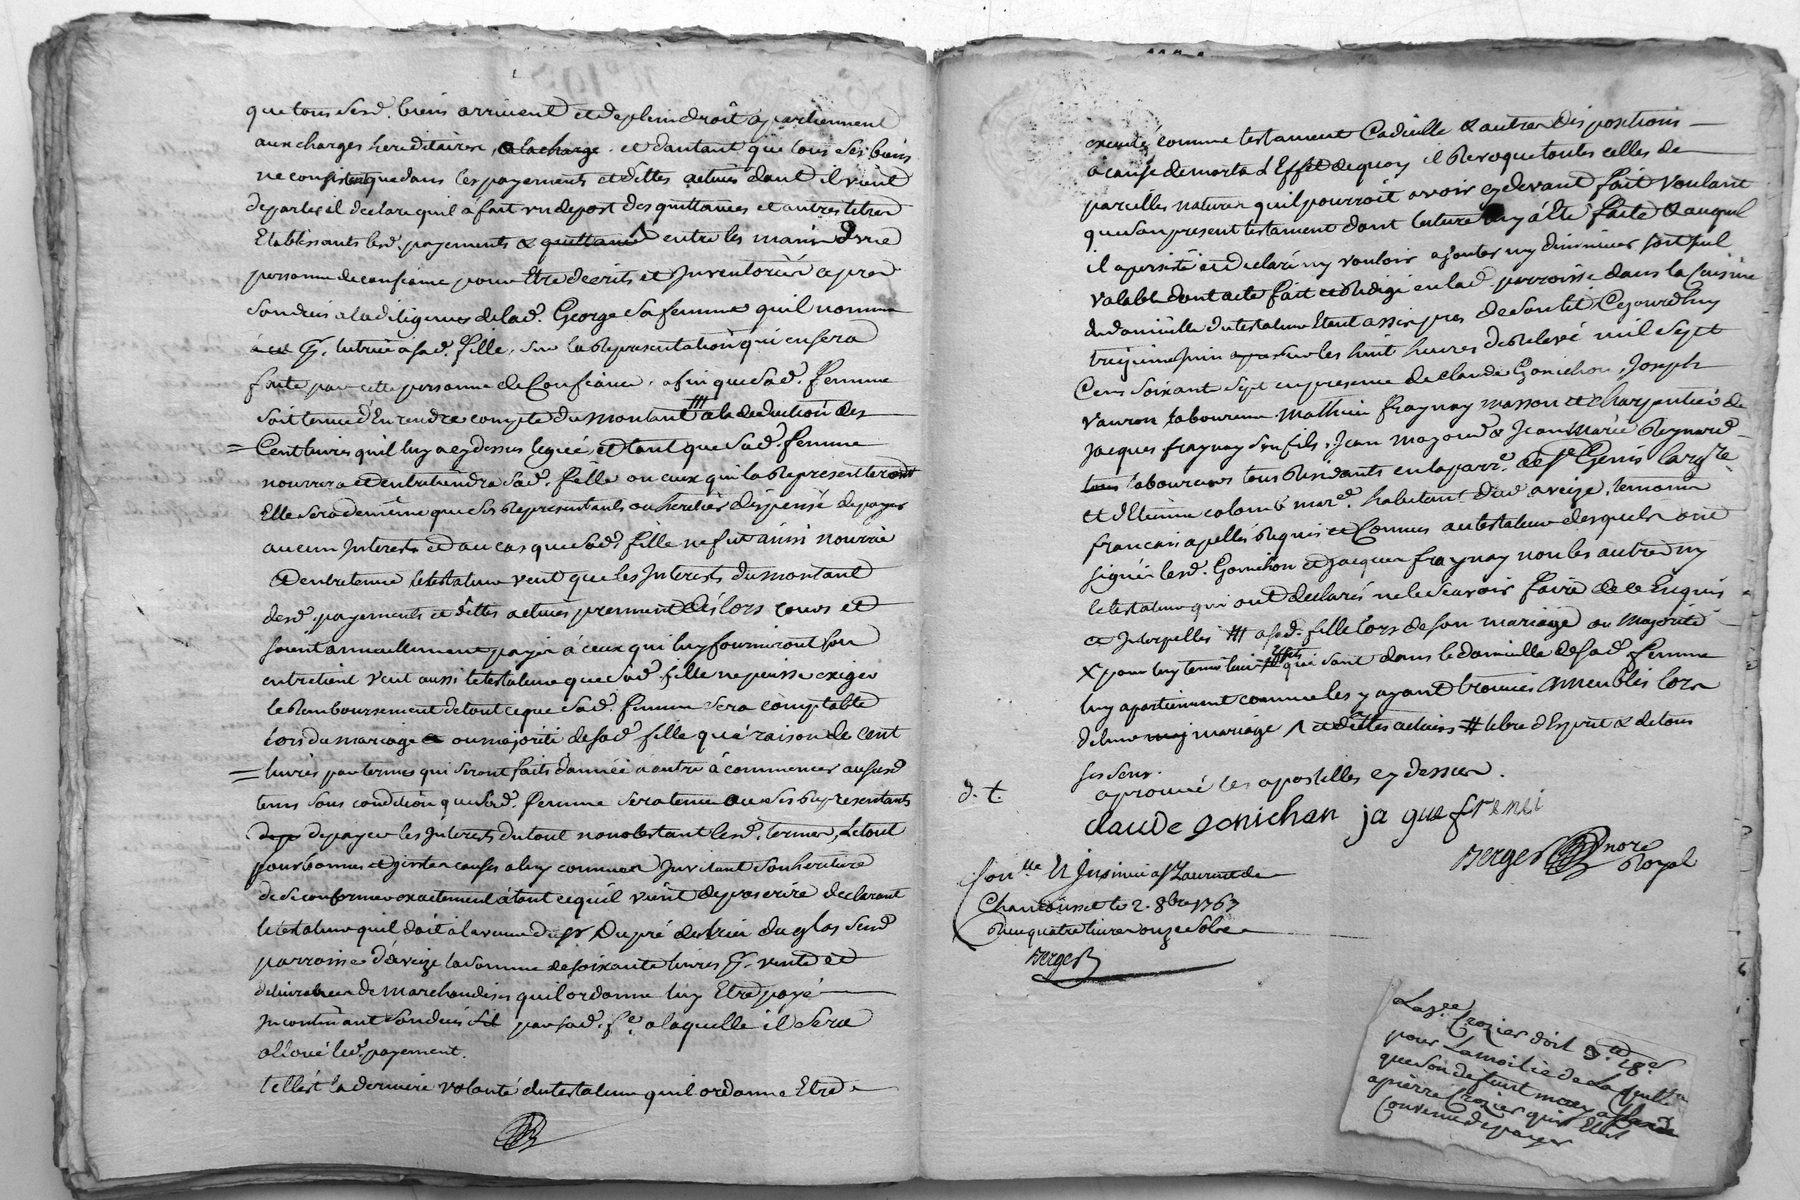 que tous sesd. biens arrivent et de plein droit apartiennent
aux charges hereditaires, a la charge. et dautant que tous ses biens
ne consistent que dans les payements et dettes actives dont il vient
de parler il declare qu'il a fait un depost des quittances et autres titres
Etablissants lesd. payements & quittances entre les mains d'une
personne de confiance pour Etre decrits et Inventoriés apres
son deces a la diligence de lad. George sa femme qu'il nomme
tutrice a sad. fille, sur la Representation qui en sera
faite par cette personne de Confiance, afin que sad. femme
soit tenue d'En rendre compte du montant /// a la deduction des
= Cent livres qu'il luy a cy dessus legué, et tant que sad. femme
nourrira et entretiendra sad. fille ou ceux qui la Representeront
Elle sera de même que ses Representants ou heritiers dispensé de payer
aucun Interests et au cas que sad. fille ne fut ainsi nourrie
et entretenue le testateur veut que les Interests du montant
desd. payements et dettes actives prennent dés lors cours et
soient annuellement payés à ceux qui luy fourniront son
entretient veut aussi le testateur que sad. fille ne puisse exiger
le Remboursement de tout ce que sad. femme sera comptable
lors du mariage ou majorité de sad. fille qu'à raison de cent
= livres par termes qui seront faits d'année a autre à commencer aususd.
tems sous condition que sad. femme sera tenue ou ses Representants
de payer les Interests du tout nonobstant lesd. termes, Le tout
pour bonnes et justes causes a luy connues Invitant son heritiere
de se conformer exactement à tout ce qu'il vient de prescrire declarant
le testateur qu'il doit à la veuve du Sr. Dupré du lieu du glas susd.
parroisse d'aveize la somme de soixante livres vente et
delivrance de marchandises qu'il ordonne luy Etre payé
Incontinant son deces par sad. fe. a laquelle il sera
alloué led. payement.
telle est la derniere volonté du testateur qu'il ordonne Etre
executé comme testament Codicille & autres dispositions
a cause de mort a L'Effet de quoy il Revoque toutes celles de
pareilles natures qu'il pourroit avoir cy devant fait voulant
que son present testament dont lecture luy a Eté faite & auquel
il a persisté et declaré ny vouloir ajouter ny diminuer soit seul
valable dont acte fait et Redigé en lad. parroisse dans la Cuisine
du domicille du testateur Etant assis pres de son lit Cejourdhuy
treizieme Juin apres sur les huit heures de Relevé mil sept
Cens soixant sept en presence de claude Gonichon, Joseph
vauron laboureur. Mathieu fraynay masson et charpentier &
Jacques fraynay son fils, Jean mazoud & Jean Marie Reynard
tous laboureurs tous Residants en la parr. de St. Genis Largre.
et d'Etienne colomb mar. habitant dud. aveize, temoins
francais apellés Requis et Connus au testateur desquels ont
signés lesd. Gonichon et Jacques fraynay non les autres ny
le testateur qui ont declarés ne le scavoir faire de ce Enquis
et Interpellés /// a sad. fille lors de son mariage ou majorité
X pour luy tenir lieu effets qui sont dans le domicille de sad. femme
luy apartiennent comme les y ayant trouvés Ameublés lors
de leur mariage /\ et dettes actives # libre d'Esprit & de tous
ses sens.
d. t.
aprouvé les apostilles cy dessus.
claude gonichon jaque frenei
Berger nore
Royal
Con.lle Et Insinué a St Laurent de
Chamousset le 2. 8bre 1767
Reçu quatre livres onze sols
Berger
La ve. Crozier doit 9 tt 18 s
pour La moitié de La quitte
que son defunt mary a passé
a pierre Crozier qui Etoit
Convenue de payer